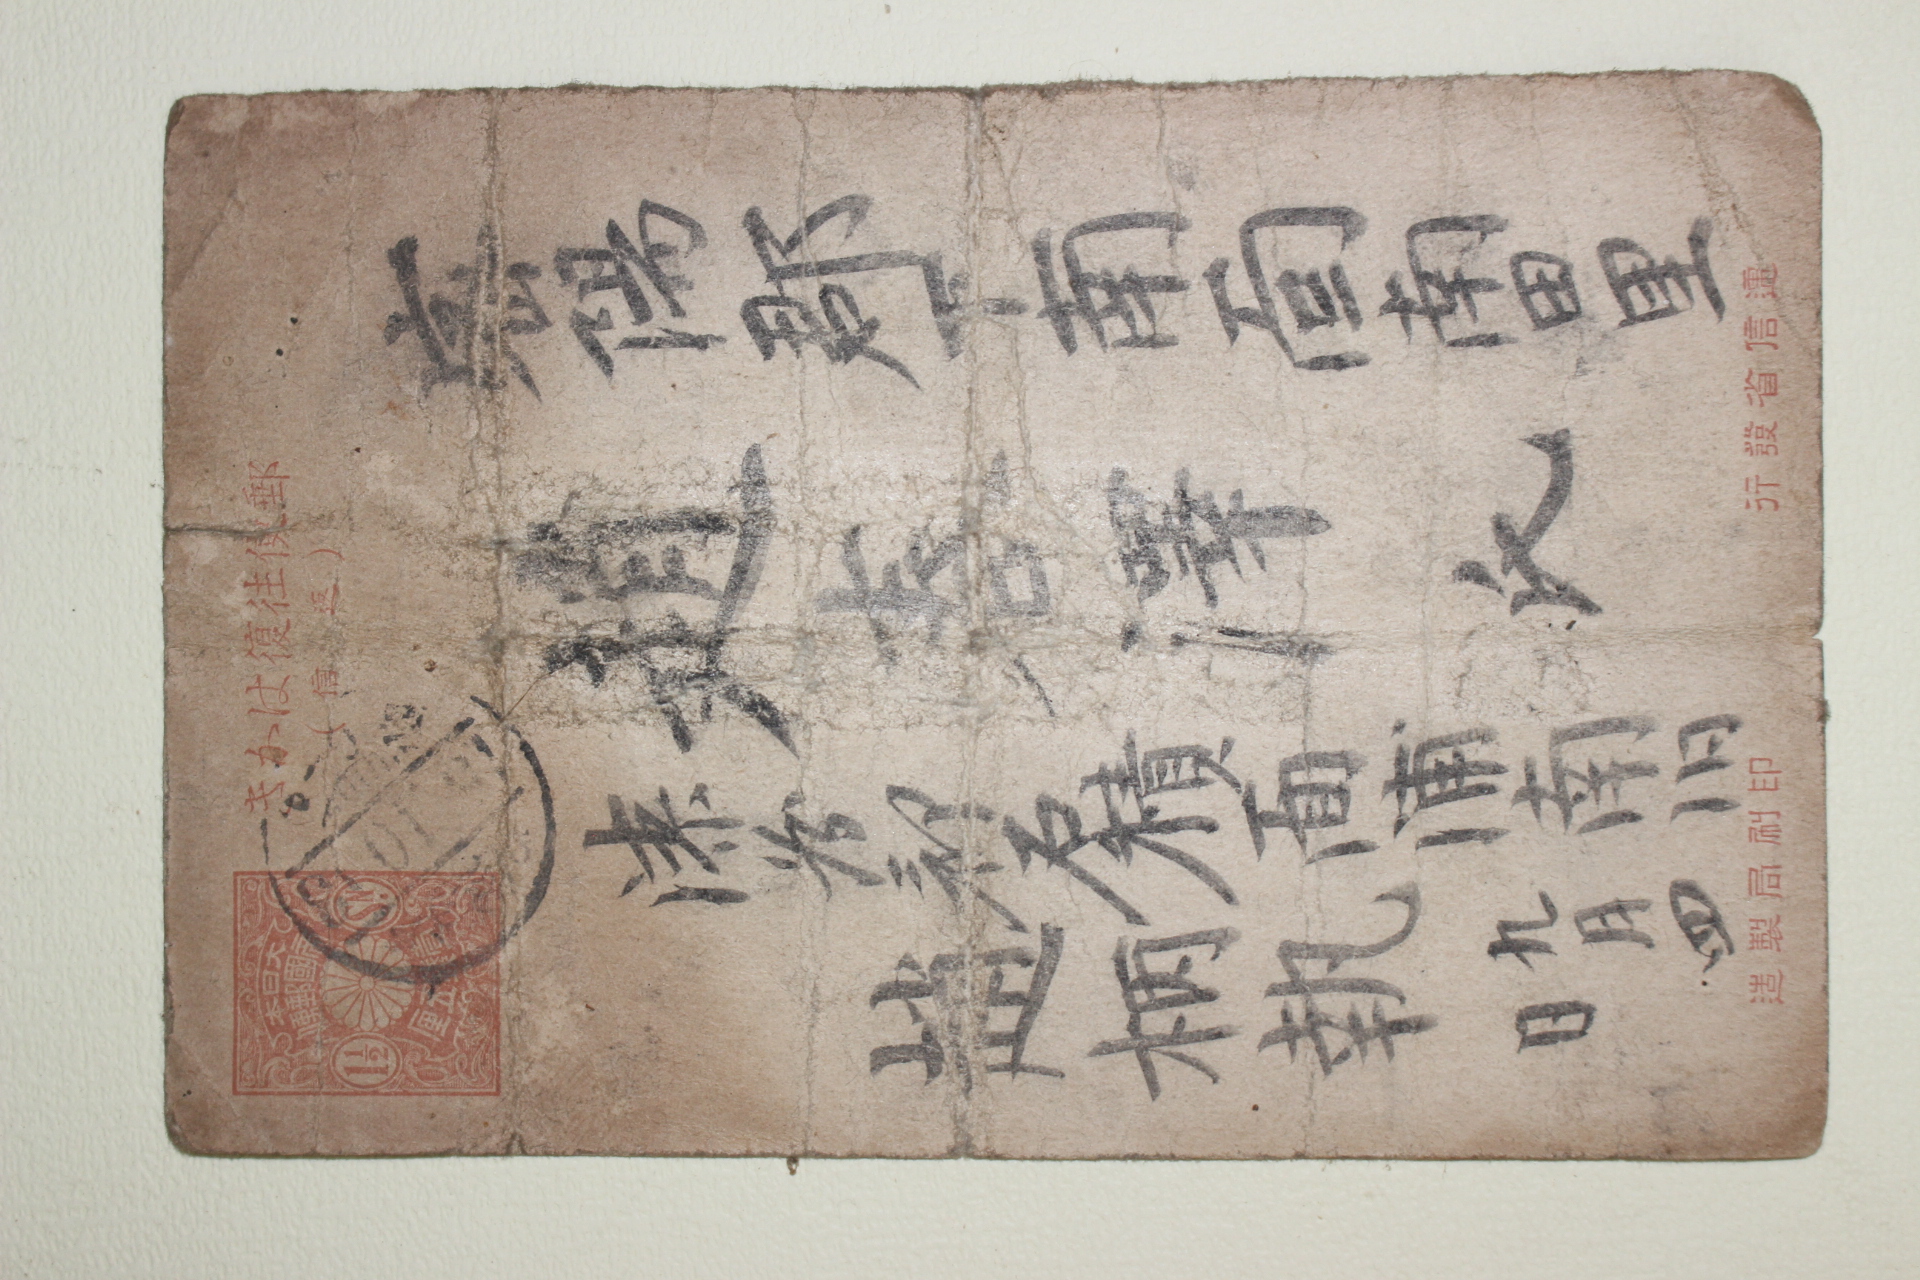 郵便往復はかき
(返信)
大日本
帝國郵便
1½ Sn.
壹錢五厘
密陽郡下南面南田里
趙喜澤氏
漆谷郡石積面浦南旧
趙柄執
九月四
日
遞信省發行
印刷局製造